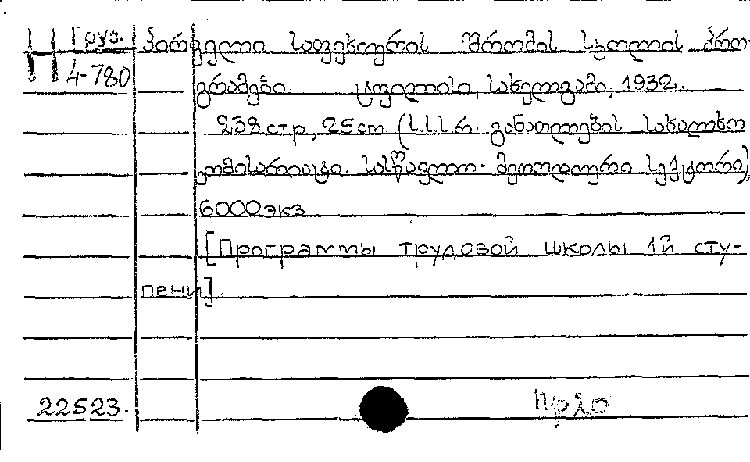 Груз. პირველი საფეხურის შრომის სკოლის პრო-
4-780 გრამები. ტფილისი, სახელგამი, 1932.
238 стр, 25 cm (ს.ს.ს.რ. განათლების სახალხო
კომისარიატი. სასწავლო-მეთოდური სექტორი)
6000 экз
[Программы трудовой школы 1й сту-
пени]
22523. Пр20